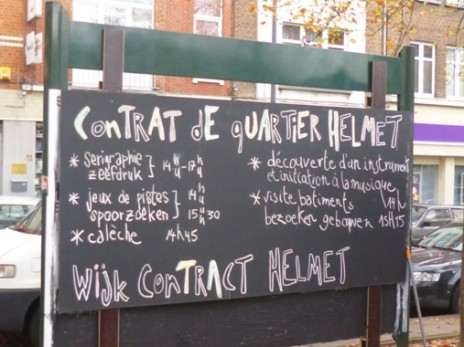 ConTRAT dE quARTiER HELMET
* SERigRAPhiE
zEEfdRuk } 14h-17h
* jEux dE pistEs
spoorzoEkEn } 14h 15h30
* calèchE 14h45
* dEcouvERtE d'un instRumEnt
Et initiation à la musiquE
* visitE batimEnts 14h
bEzoEkEn gEbouwEn 15H15
Wijk ConTRACT HELMET